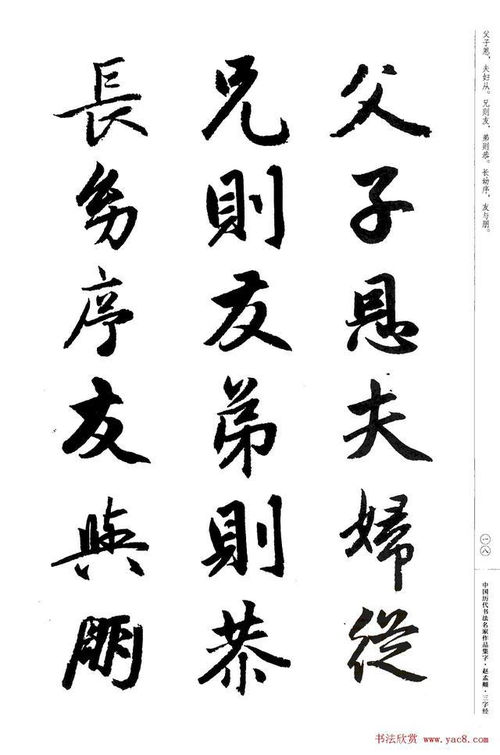 父子恩夫婦從
兄則友弟則恭
長幼序友與朋
父子恩，夫妇从。兄则友，弟则恭。长幼序，友与朋。
一八
中国历代书法名家作品集字·赵孟頫·三字经
书法欣赏 www.yac8.com